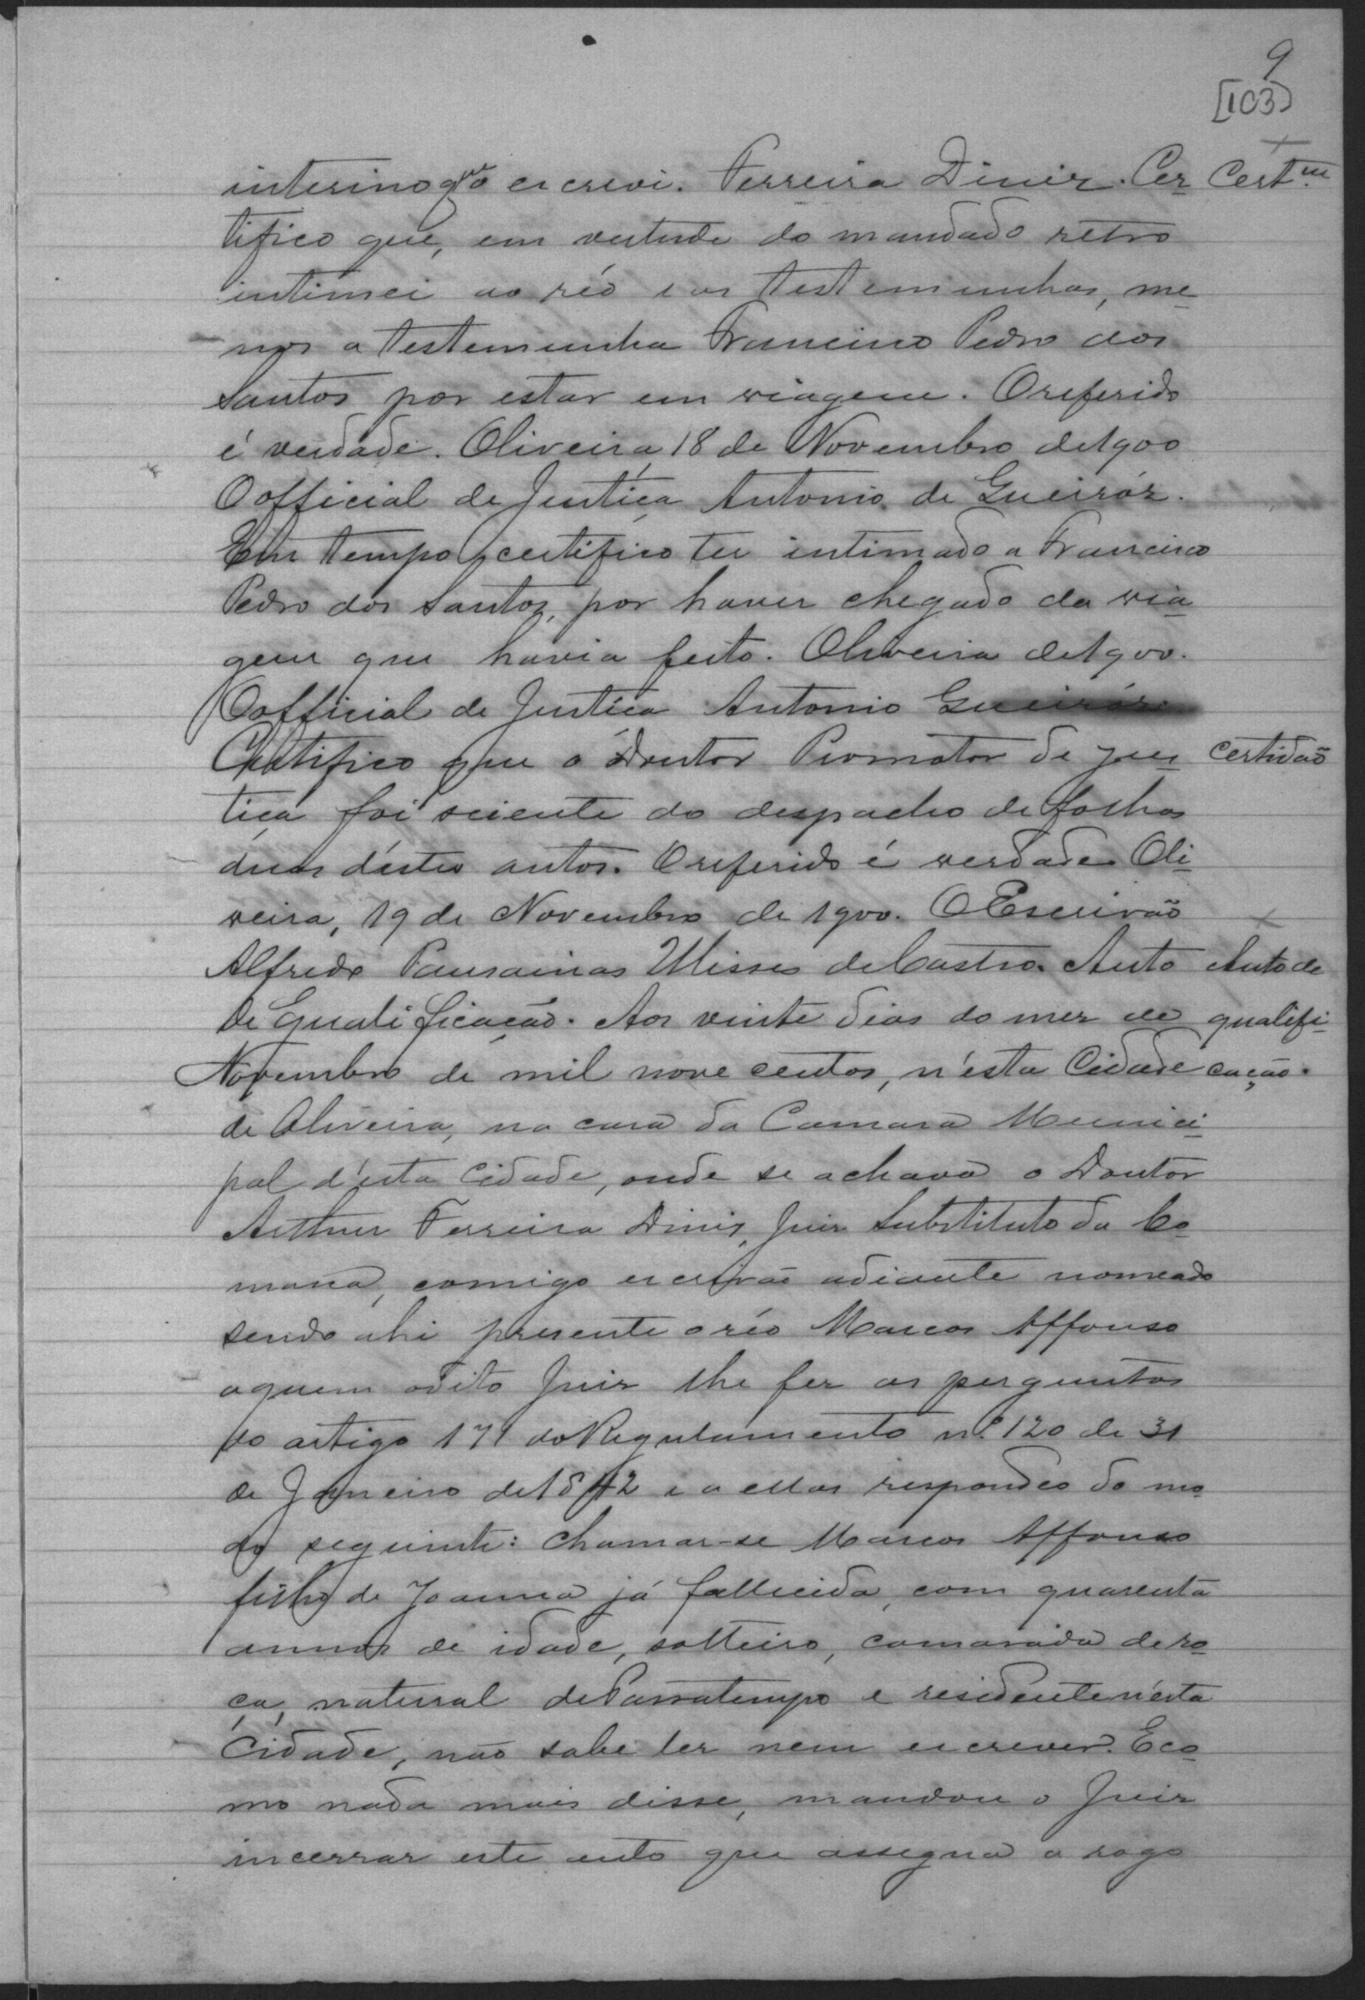 9
[103]
interino q̃ o escrevi. Ferreira Diniz. Cer
Cert.m
tifico que, em vertude do mandado retro
intimei ao réo e as testemunhas, me
nos a testemunha Francisco Pedro dos
Santos por estar em viagem. O referido
é verdade. Oliveira, 18 de Novembro de 1900
O official de Justiça Antonio de Gueiróz.
Em tempo certifico ter intimado a Francisco
Pedro dos Santos, por haver chegado da via
gem que havia feito. Oliveira de 1900.
O official de Justiça Antonio Gueiróz.
Certifico que o Doutor Promotor de jus
certidão
tiça foi sciente do despacho de folhas
duas déstes autos. O referido é verdade. Oli
veira, 19 de Novembro de 1900. O Escrivão
Alfredo Pausainas Ulisses de Castro. Auto
Auto de
de Qualificação. Aos vinte dias do mez de
qualifi
Novembro de mil nove centos, n'ésta Cidade
cação.
de Oliveira, na casa da Camara Munici
pal d'ésta Cidade, onde se achava o Doutor
Arthur Ferreira Diniz, Juiz Substituto da Co
marca, comigo escrivão adiante nomeado
sendo ahi presente o réo Marcos Affonso
a quem o dito Juiz lhe fez as perguntas
do artigo 171 do Regulamento nº 120 de 31
de Janeiro de 1842 e a ellas respondeo do mo
do seguinte: chamar-se Marcos Affonso
filho de Joanna já fallecida, com quarenta
annos de idade, solteiro, camarada de ro
ça, natural de Passatempo e residente n'ésta
Cidade, não sabe ler nem escrever. E co
mo nada mais disse, mandou o Juiz
incerrar este auto que assigna a rogo